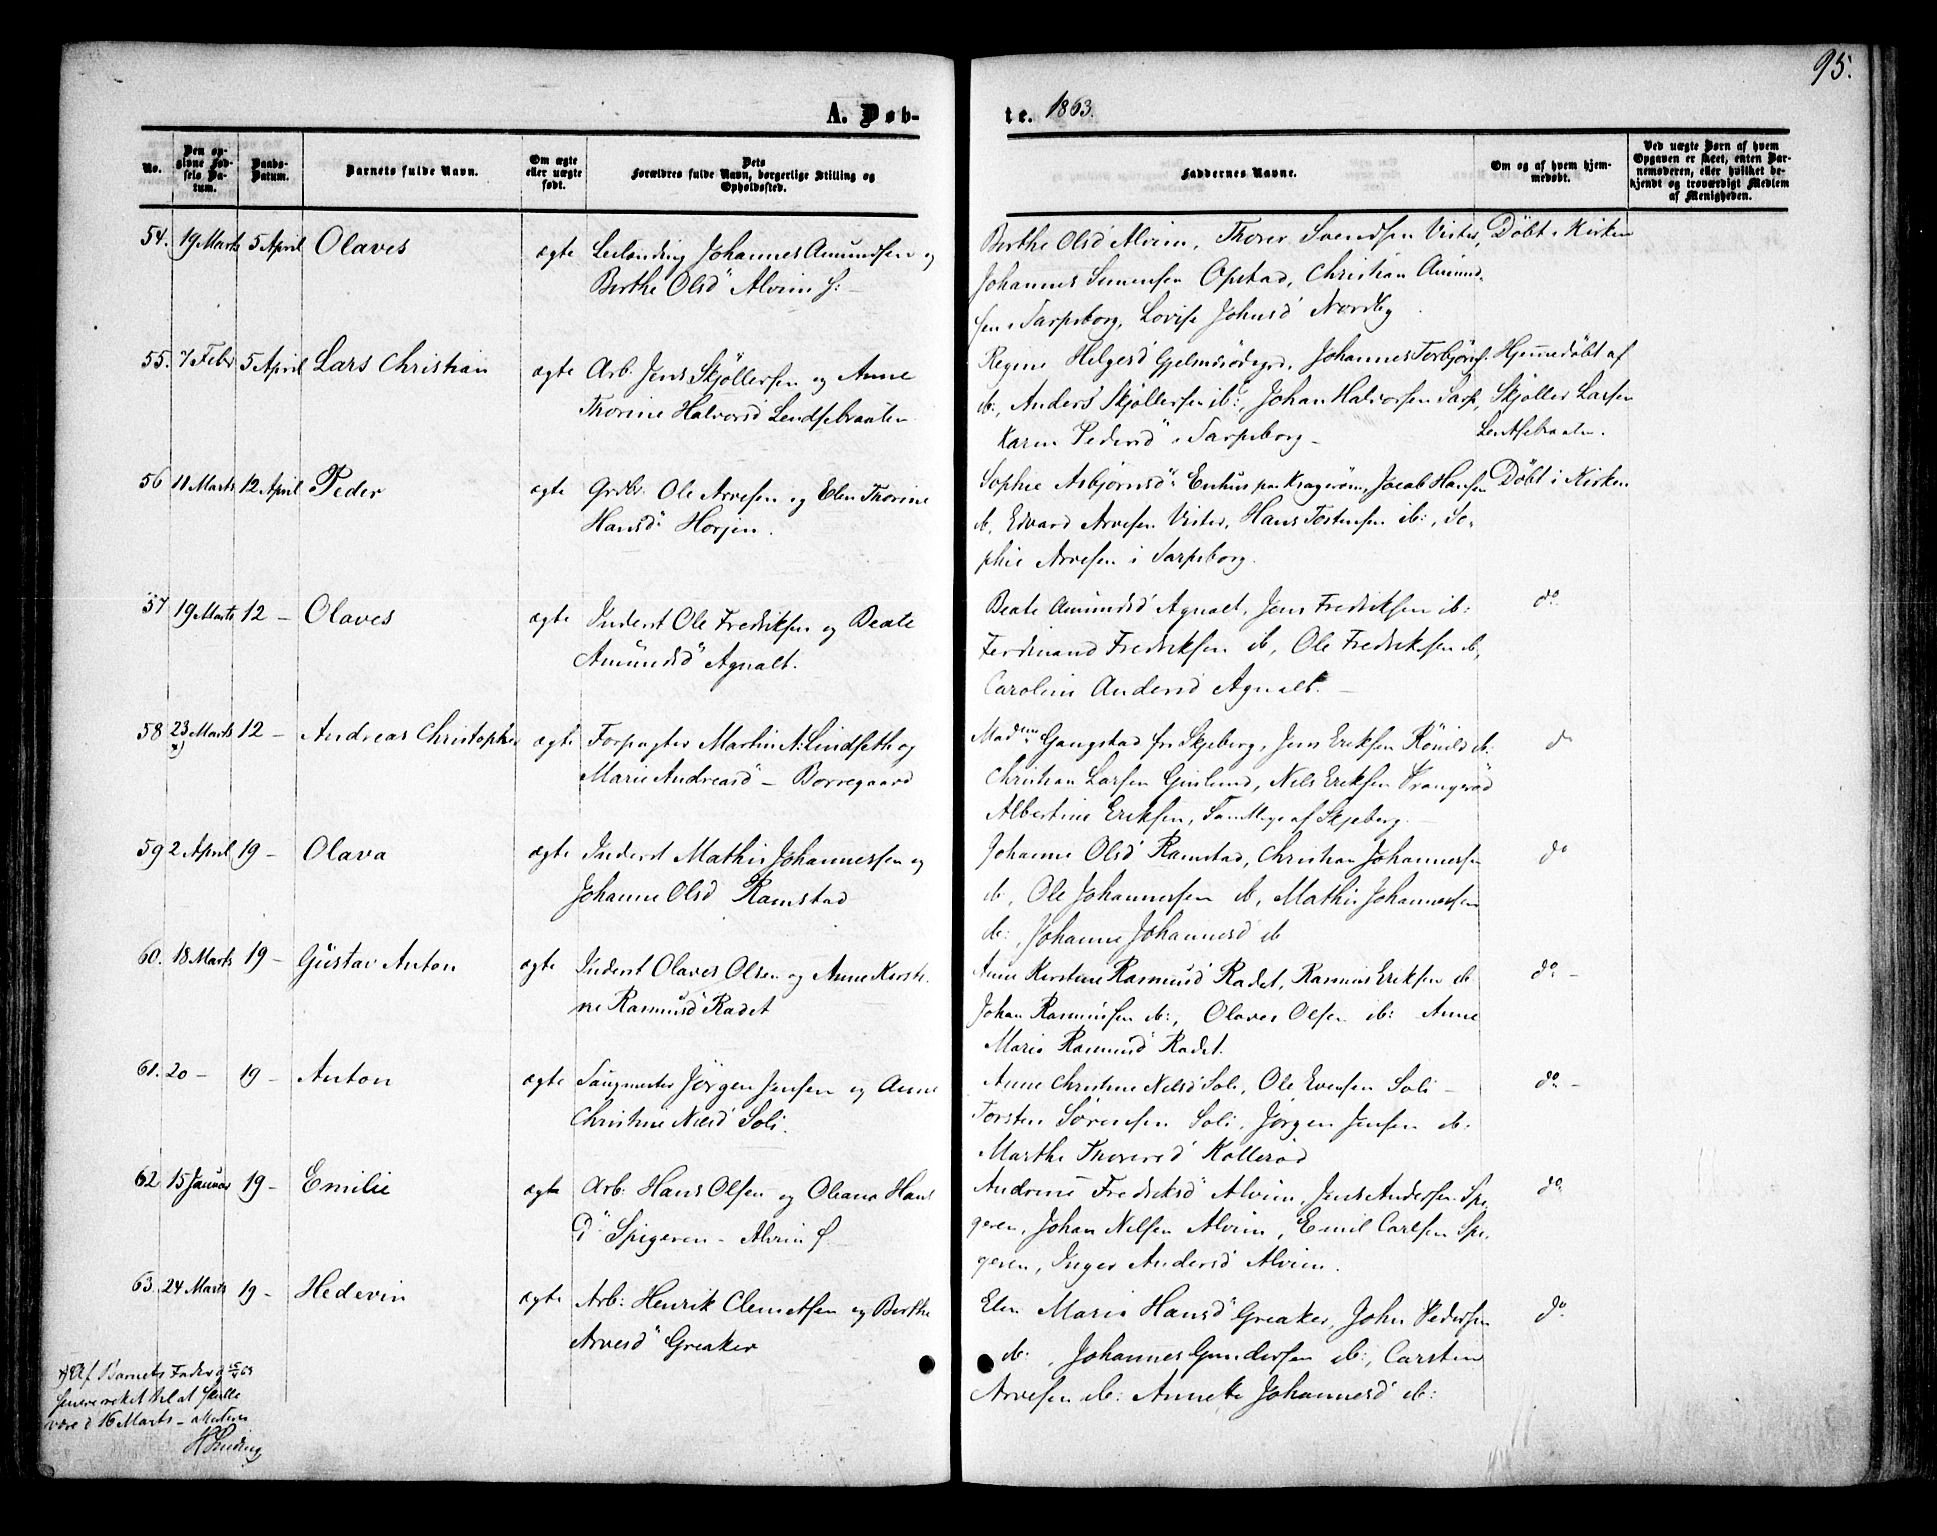 95.
A. Døb-
te. 1863.
No.
Den op-
givne Fød-
sels Da-
tum.
Daabs-
Datum.
Barnets fulde Navn.
Om ægte
eller uægte
født.
Dets
Forældres fulde Navn, borgerlige Stilling og
Opholdssted.
Faddernes Navne.
Om og af hvem hjem-
medøbt.
Ved uægte Børn af hvem
Opgaven er skeet, enten Bar-
nemoderen, eller hvilket be-
kjendt og troværdigt Medlem
af Menigheden.
54. 19 Marts 5 April Olaves ægte Leilænding Johannes Amundsen og
Berthe Olsd Alvim
Berthe Olsd Alvim, Thorer Svendsen Vister, Døbt i Kirken
Johannes Simensen Opstad, Christian Amund-
sen i Sarpsborg, Lovise Johnsd Nordby.
55. 7 Febr 5 April Lars Christian ægte Arb. Jens Skjøllersen og Anne
Thorine Halvorsd Lendsebraaten
Regine Helgesd Johannes Torbjörns. Hjemmedøbt af
ib:, Anders Skjøllersen ib:, Johan Halvorsen Sarp, Skjøller Larsen
Karen Pedersd i Sarpsborg - Lendsebraaten.
56 11 Marts 12 April Peder ægte Grdbr. Ole Arvesen og Elen Thorine
Hansd Horjen.
Sophie Asbjørnsd Enhus paa Kragerøen, Jacob Hansen Døbt i Kirken
ib, Edvard Arvesen Vister, Hans Torstensen ib:, So-
phie Arvesen i Sarpsborg.
57 19 Marts 12 - Olaves ægte Inderst Ole Fredriksen og Beate
Amundsd Agnalt.
Beate Amundsd Agnalt, Jens Fredriksen ib: do
Ferdinand Fredriksen ib, Ole Fredriksen ib,
Caroline Andersd Agnalt. -
58 23 Marts x) 12 - Andreas Christopher ægte Forpagter Martin A: Lindseth og
Marie Andreasd - Borregaard
Madme Gangstad fr Skjeberg, Jens Eriksen ib: do
Christian Larsen Nils Eriksen
Albertine Eriksen, af Skjeberg. -
59 2 April 19 - Olava ægte Inderst Mathis Johannessen og
Johanne Olsd Ramstad
Johanne Olsd Ramstad, Christian Johannessen do
ib, Ole Johannessen ib, Mathis Johannessen
ib:, Johanne Johannesd ib
60. 18 Marts 19 - Gustav Anton ægte Inderst Olaves Olsen og Anne Kersti-
ne Rasmusd Radet
Anne Kerstine Rasmusd Radet, Rasmus Eriksen ib do -
Johan Rasmussen ib:, Olaves Olsen ib: Anne
Marie Rasmusd Radet.
61. 20 - 19 - Anton ægte Saugmester Jörgen Jensen og Anne
Christine Nilsd Soli.
Anne Christine Nilsd Soli, Ole Evensen Soli - do -
Torsten Sörensen Soli, Jörgen Jensen ib:
Marthe Thoresd Kolleröd
62. 15 Januar 19 - Emilie ægte Arb: Hans Olsen og Oleana Hans
D Spigeren - Alvim
Andrine Fredriksd Alvim, Jens Andersen Spi- do
geren, Johan Nilsen Alvim, Emil Carlsen Spi-
geren, Inger Andersd Alvim.
63. 24 Marts 19 - Hedevin ægte Arb: Henrik Clemetsen og Berthe
Arvesd Greaker
Elen Marie Hansd Greaker, John Pedersen do
ib:, Johannes Gundersen ib:, Carsten
Arvesen ib: Annette Johannesd ib:
x) Af Barnets Fader
til at skulle
være d 16 Marts -